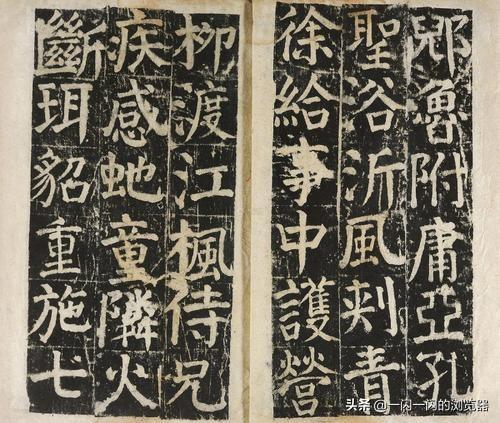 郳魯附庸亞孔
聖浴沂風刾青
徐給事中護營
柳渡江楓侍兄
疾感虵童隣火
斷珥貂重施七
头条 @一闪一闪的浏览器